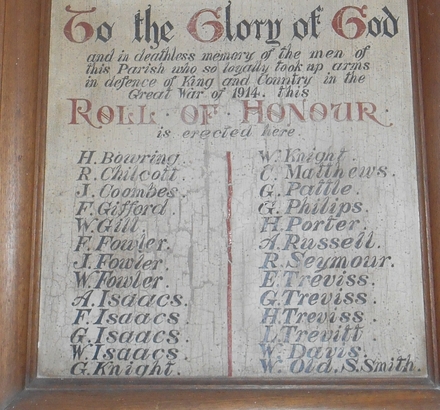 To the Glory of God
and in deathless memory of the men of
this Parish who so loyally took up arms
in defence of King and Country in the
Great War of 1914. this
ROLL · OF · HONOUR.
is erected here
H. Bowring.
R. Chilcott.
J. Coombes.
F. Gifford.
W. Gill.
F. Fowler.
J. Fowler.
W. Fowler.
A. Isaacs.
F. Isaacs.
G. Isaacs.
W. Isaacs.
G. Knight.
W. Knight.
C. Matthews.
G. Pattle.
G. Philips.
H. Porter.
A. Russell.
R. Seymour.
E. Treviss.
G. Treviss.
H. Treviss
L. Trevitt
W. Davis.
W. Old. S. Smith.